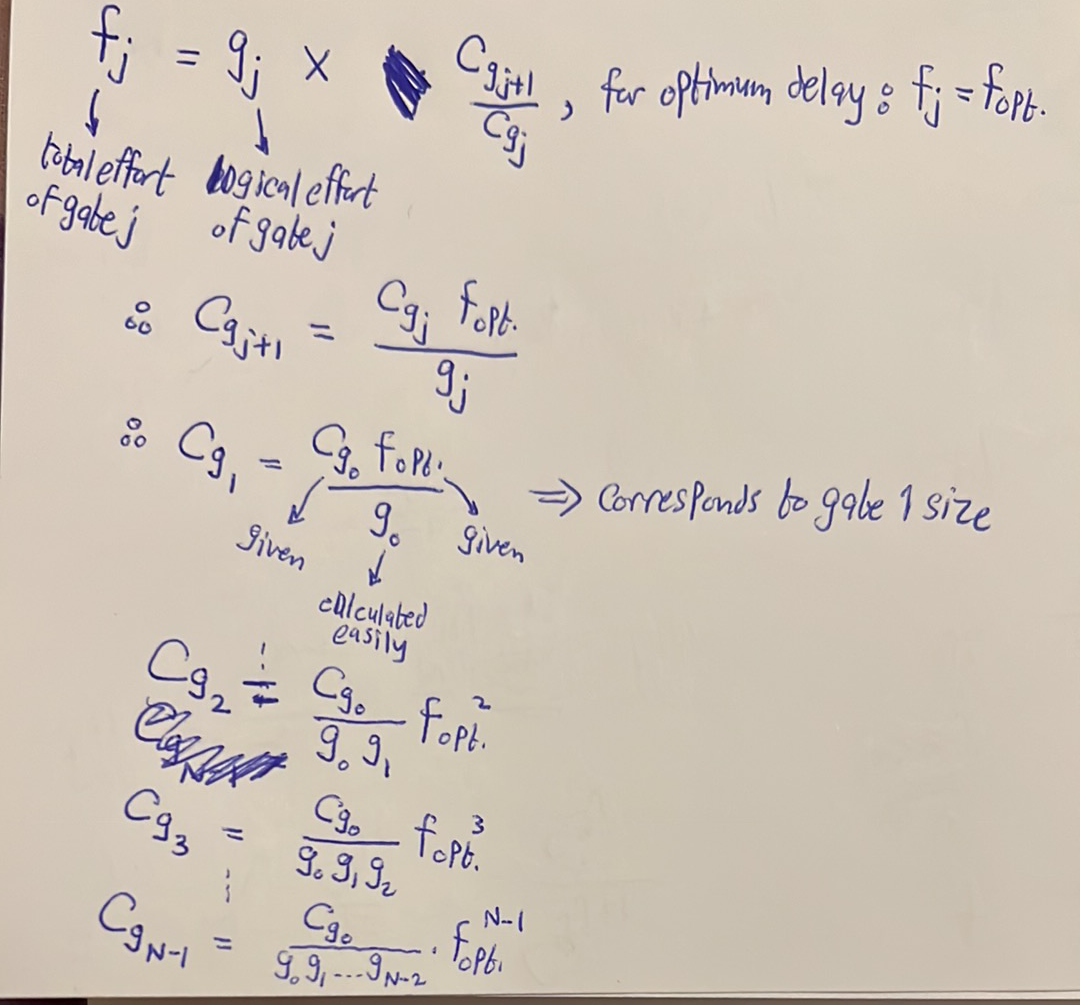 fj = gj × Cgj+1 / Cgj , for optimum delay : fj = fopt.
total effort of gate j
logical effort of gate j
∴ Cgj+1 = Cgj fopt. / gj
∴ Cg1 = Cg0 fopt. / g0 ⇒ corresponds to gate 1 size
given
given
calculated easily
⋮
Cg2 = Cg0 / g0 g1 fopt.²
Cg3 = Cg0 / g0 g1 g2 fopt.³
⋮
CgN-1 = Cg0 / g0 g1 ... gN-2 . fopt.^N-1